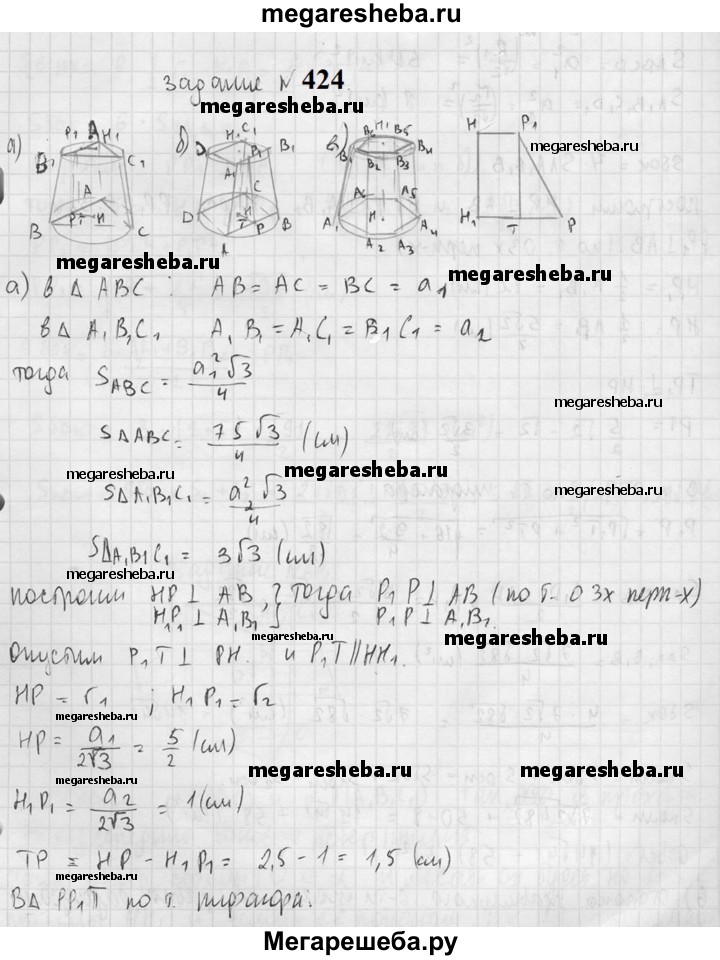 megaresheba.ru
задание № 424
megaresheba.ru
а) б) в)
P₁ A H₁ B₁ C₁ A B P H C
H₁ C₁ P₁ B₁ A₁ C D H P B A
B₆ H₁ B₅ B₂ B₃ B₄ A₆ A₅ A₁ H A₂ A₃ A₄
H P₁ H₁ T P
megaresheba.ru
megaresheba.ru
megaresheba.ru
а) в Δ ABC : AB = AC = BC = a₁
в Δ A₁B₁C₁ A₁B₁ = A₁C₁ = B₁C₁ = a₂
тогда S_ABC = a₁²√3 / 4
megaresheba.ru
SΔABC = 75√3 / 4 (см)
megaresheba.ru
megaresheba.ru
SΔA₁B₁C₁ = a₂²√3 / 4
megaresheba.ru
SΔA₁B1C₁ = 3√3 (см)
megaresheba.ru
построим HP ⊥ AB, } тогда P₁P ⊥ AB (по т. о 3х перп-х)
H₁P₁ ⊥ A₁B₁ } P₁P ⊥ A₁B₁.
megaresheba.ru
Опустим P₁T ⊥ PH. и P₁T ∥ HH₁.
HP = r₁ ; H₁P₁ = r₂
megaresheba.ru
HP = a₁ / 2√3 = 5/2 (см)
megaresheba.ru
megaresheba.ru
megaresheba.ru
H₁P₁ = a₂ / 2√3 = 1 (см)
TP = HP - H₁P₁ = 2,5 - 1 = 1,5 (см)
megaresheba.ru
megaresheba.ru
В Δ PP₁T по т. пифагора:
Мегарешеба.ру